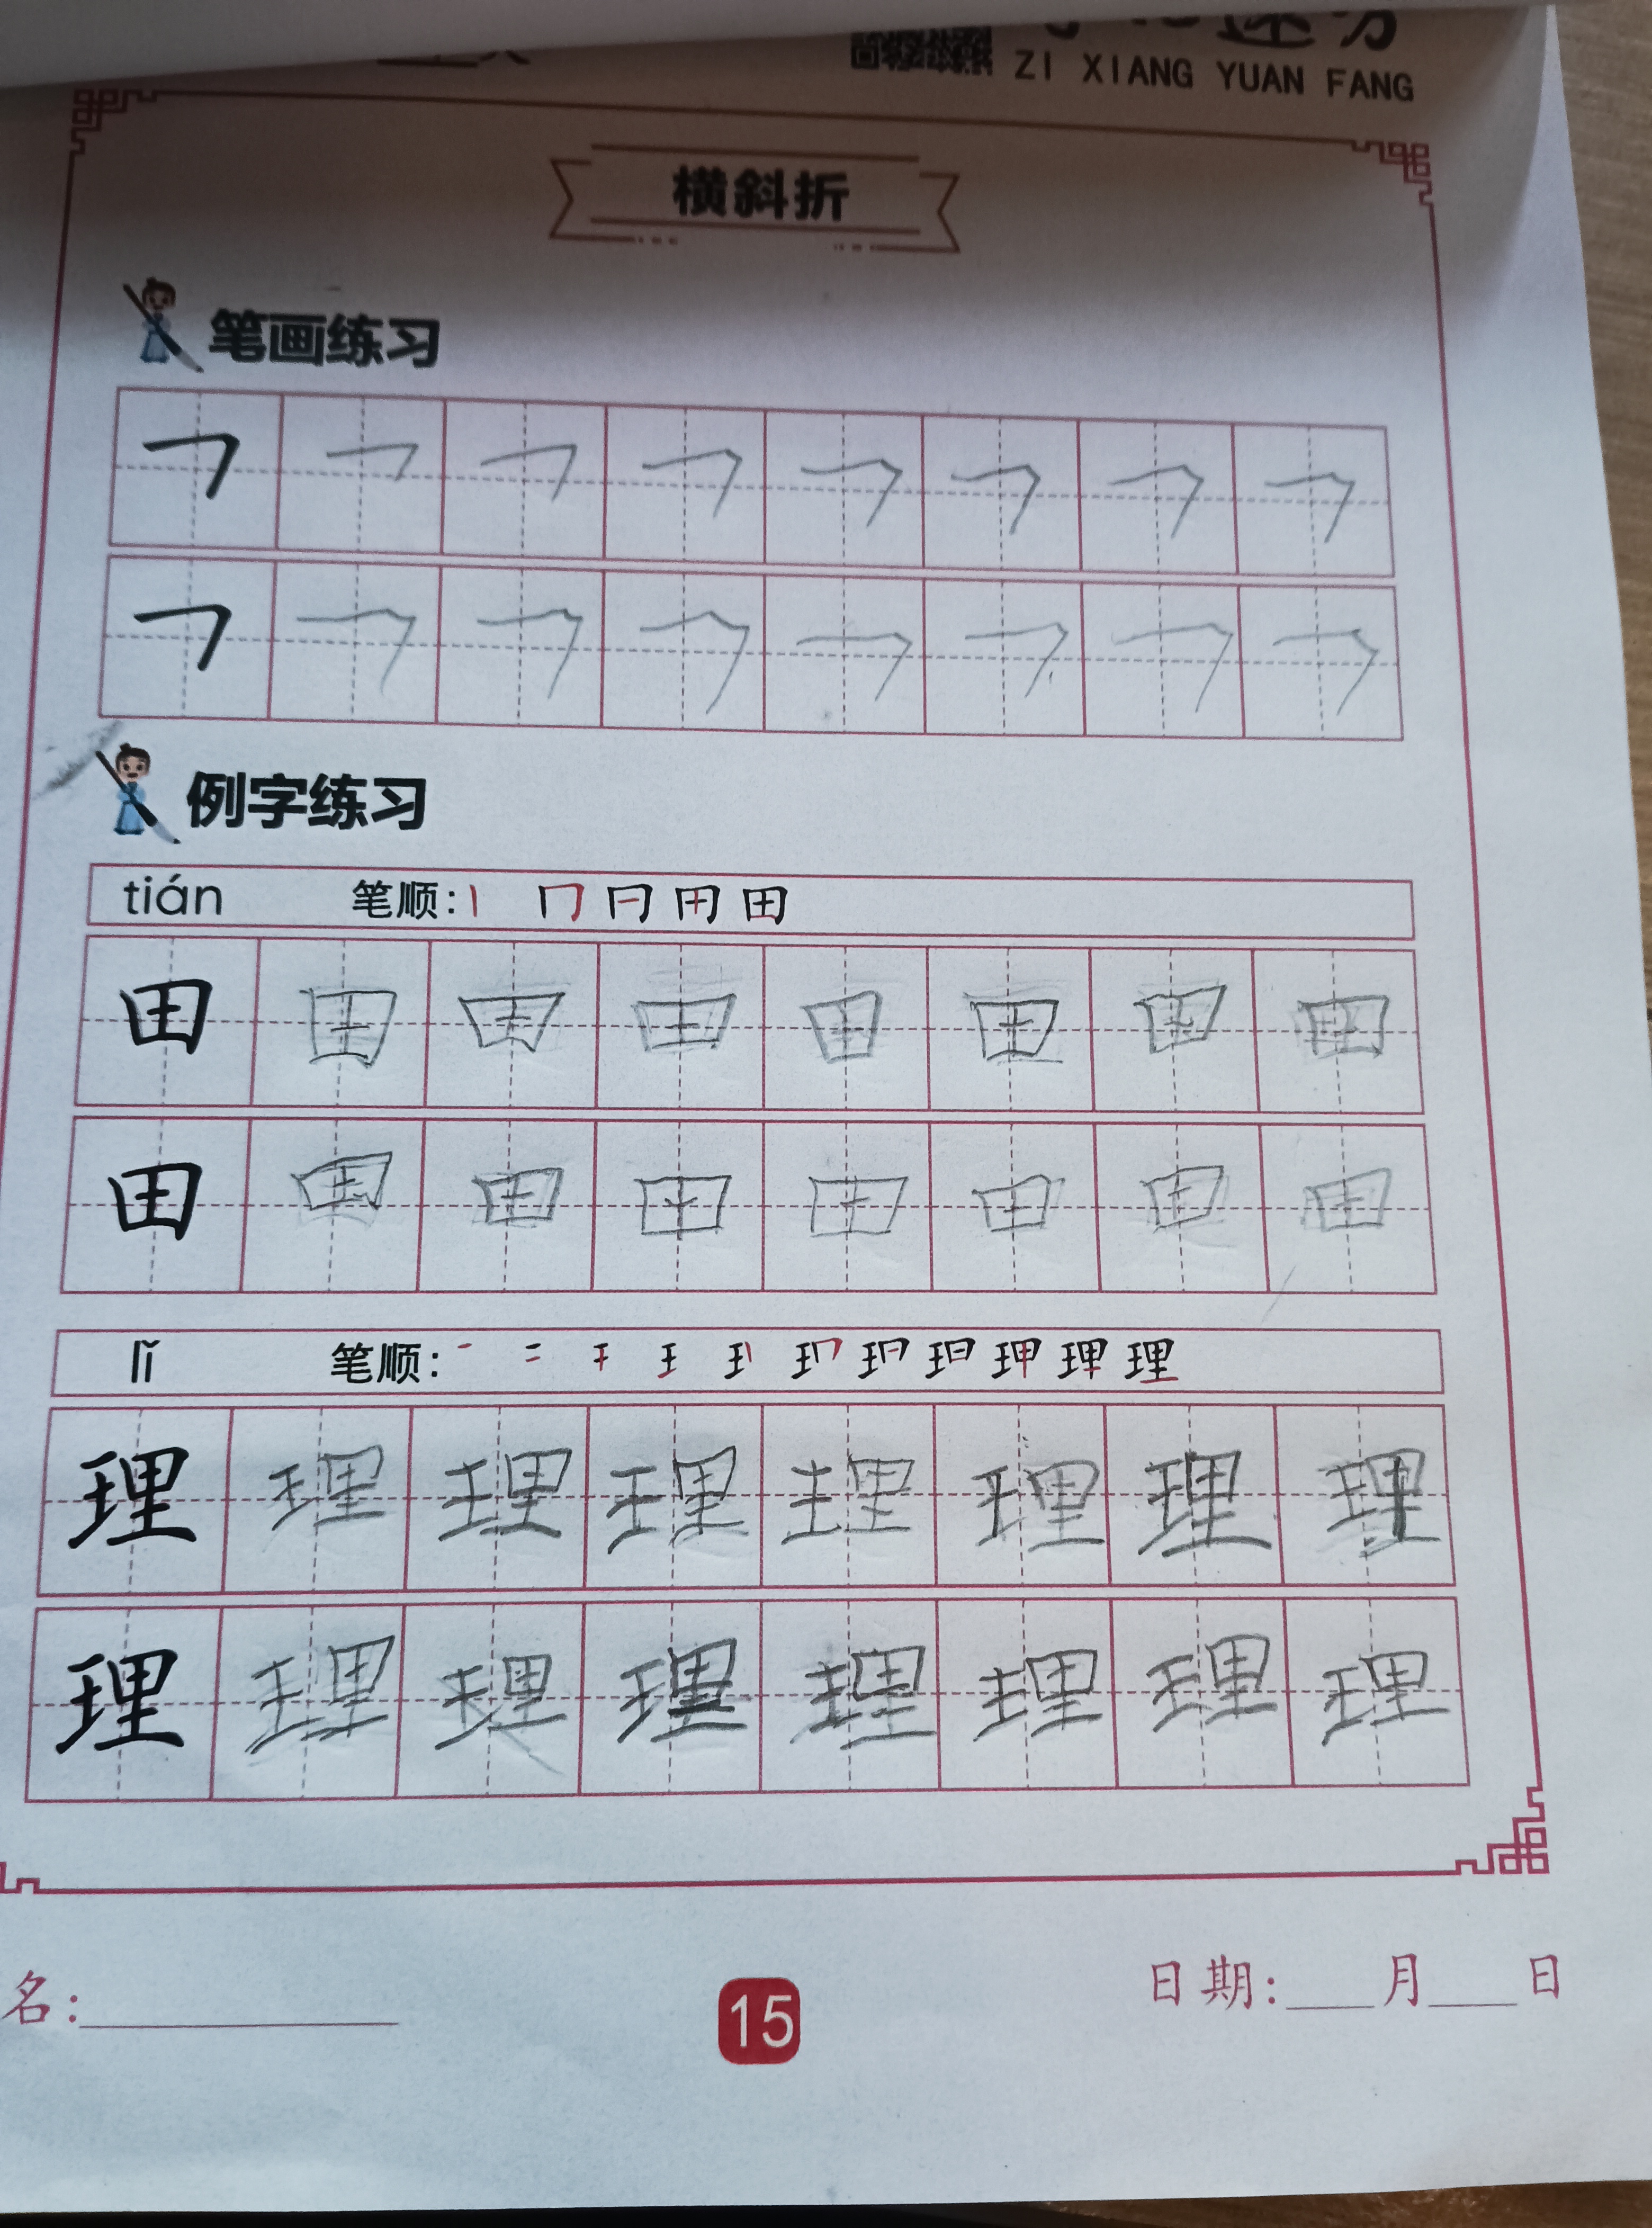 ZI XIANG YUAN FANG
横斜折
笔画练习
㇕ ㇕ ㇕ ㇕ ㇕ ㇕ ㇕ ㇕
㇕ ㇕ ㇕ ㇕ ㇕ ㇕ ㇕ ㇕
例字练习
tián 笔顺: 丨 冂 日 田 田
田 田 田 田 田 田 田 田
田 田 田 田 田 田 田 田
lǐ 笔顺:
理 理 理 理 理 理 理 理
理 理 理 理 理 理 理 理
名:
15
日期: 月 日